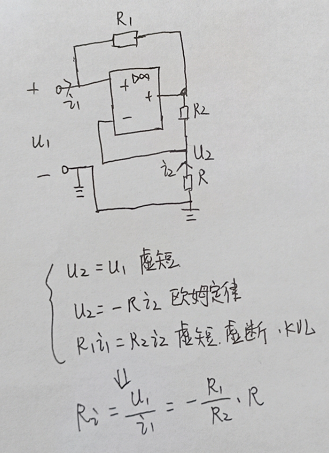 R₁
+ i₁ + ▷∞ + R₂
−
u₁ u₂
− i₂ R
u₂ = u₁ 虚短
u₂ = −R i₂ 欧姆定律
R₁i₁ = R₂i₂ 虚短.虚断、KVL
⇓
Rᵢ = u₁/i₁ = − R₁/R₂ · R